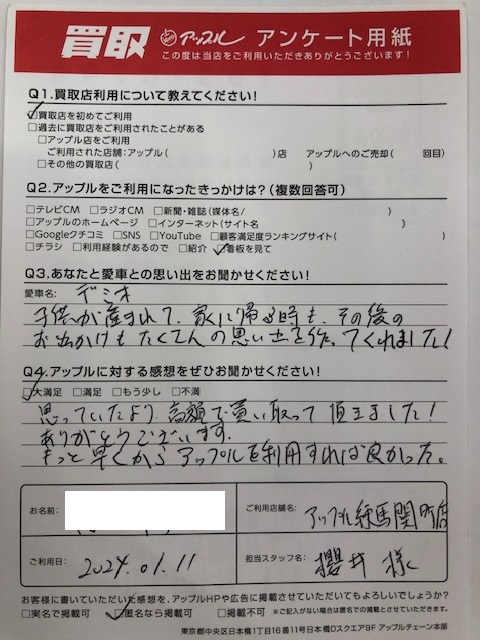 買取 アップル アンケート用紙
この度は当店をご利用いただきありがとうございます!
Q1.買取店利用について教えてください!
☑買取店を初めてご利用
□過去に買取店をご利用されたことがある
□アップル店をご利用
ご利用された店舗:アップル( )店 アップルへのご売却( 回目)
□その他の買取店( )
Q2.アップルをご利用になったきっかけは?(複数回答可)
□テレビCM □ラジオCM □新聞・雑誌(媒体名/ )
□アップルのホームページ □インターネット(サイト名 )
□Googleクチコミ □SNS □YouTube □顧客満足度ランキングサイト( )
□チラシ □利用経験があるので □紹介 ☑看板を見て
Q3.あなたと愛車との思い出をお聞かせください!
愛車名: デミオ
子供が産まれて、家に帰る時も、その後の
お出かけもたくさんの思い出を作ってくれました!
Q4.アップルに対する感想をぜひお聞かせください!
☑大満足 □満足 □もう少し □不満
思っていたより、高額で買い取って頂きました!
ありがとうございます。
もっと早くからアップルを利用すれば良かった。
お名前:
ご利用店舗名: アップル練馬関町店
ご利用日: 2024.01.11
担当スタッフ名: 櫻井様
お客様に書いていただいた感想を、アップルHPや広告に掲載させていただいてもよろしいでしょうか?
□実名で掲載可 ☑匿名なら掲載可 □掲載不可 ※ご記入がない場合は匿名での掲載とさせていただきます。
東京都中央区日本橋1丁目16番11号日本橋Dスクエア9F アップルチェーン本部